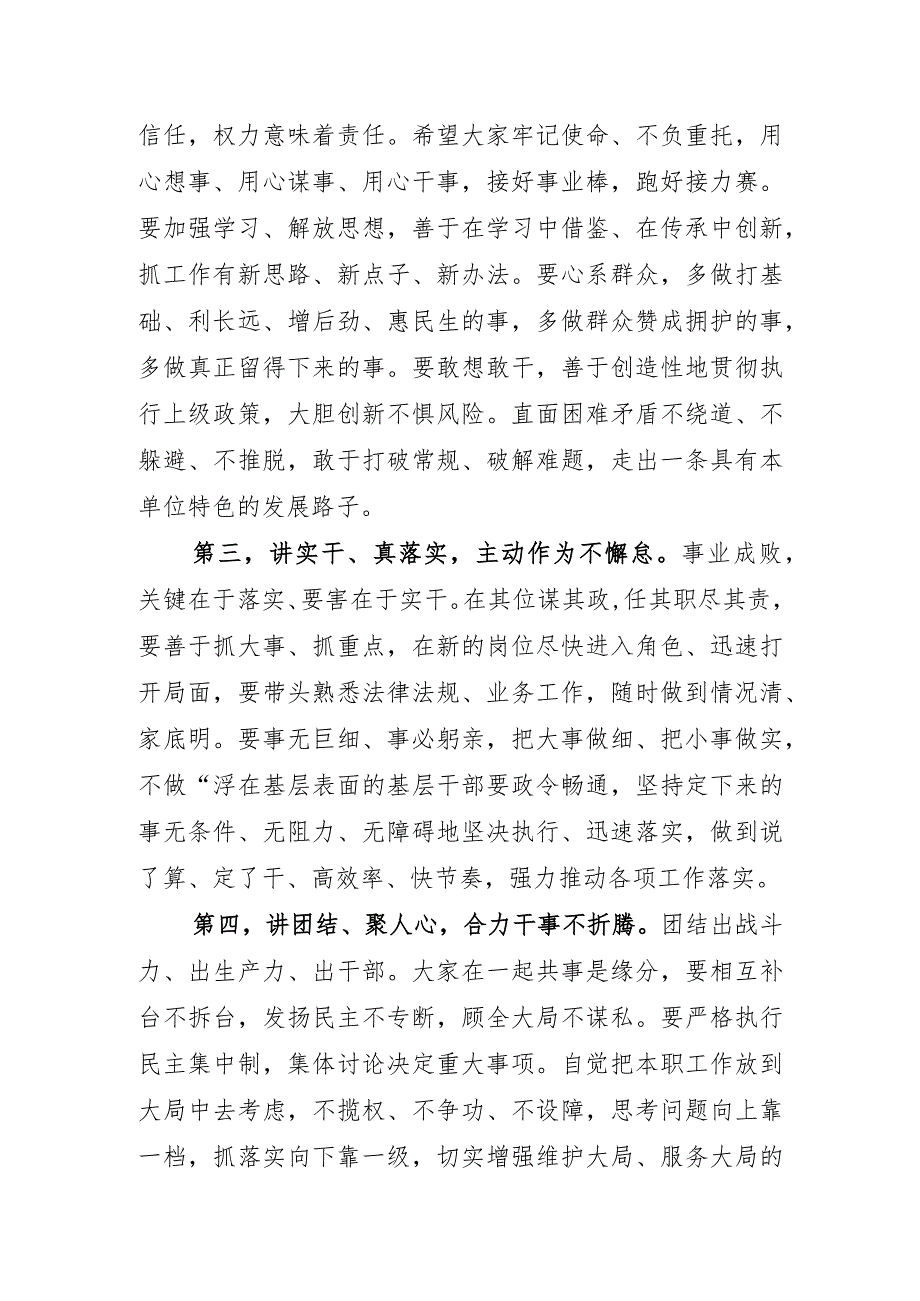 信任，权力意味着责任。希望大家牢记使命、不负重托，用
心想事、用心谋事、用心干事，接好事业棒，跑好接力赛。
要加强学习、解放思想，善于在学习中借鉴、在传承中创新，
抓工作有新思路、新点子、新办法。要心系群众，多做打基
础、利长远、增后劲、惠民生的事，多做群众赞成拥护的事，
多做真正留得下来的事。要敢想敢干，善于创造性地贯彻执
行上级政策，大胆创新不惧风险。直面困难矛盾不绕道、不
躲避、不推脱，敢于打破常规、破解难题，走出一条具有本
单位特色的发展路子。
第三，讲实干、真落实，主动作为不懈怠。事业成败，
关键在于落实、要害在于实干。在其位谋其政,任其职尽其责，
要善于抓大事、抓重点，在新的岗位尽快进入角色、迅速打
开局面，要带头熟悉法律法规、业务工作，随时做到情况清、
家底明。要事无巨细、事必躬亲，把大事做细、把小事做实，
不做“浮在基层表面的基层干部要政令畅通，坚持定下来的
事无条件、无阻力、无障碍地坚决执行、迅速落实，做到说
了算、定了干、高效率、快节奏，强力推动各项工作落实。
第四，讲团结、聚人心，合力干事不折腾。团结出战斗
力、出生产力、出干部。大家在一起共事是缘分，要相互补
台不拆台，发扬民主不专断，顾全大局不谋私。要严格执行
民主集中制，集体讨论决定重大事项。自觉把本职工作放到
大局中去考虑，不揽权、不争功、不设障，思考问题向上靠
一档，抓落实向下靠一级，切实增强维护大局、服务大局的